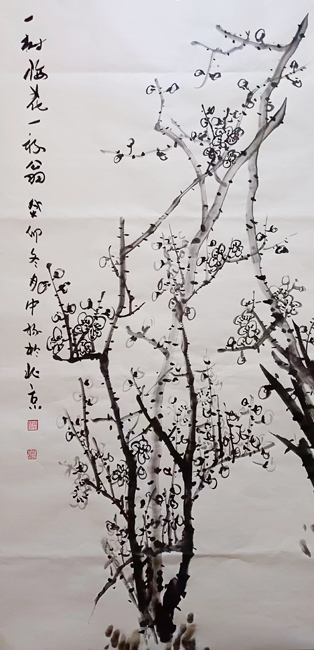 一树梅花一放翁 癸卯冬月中 於北京